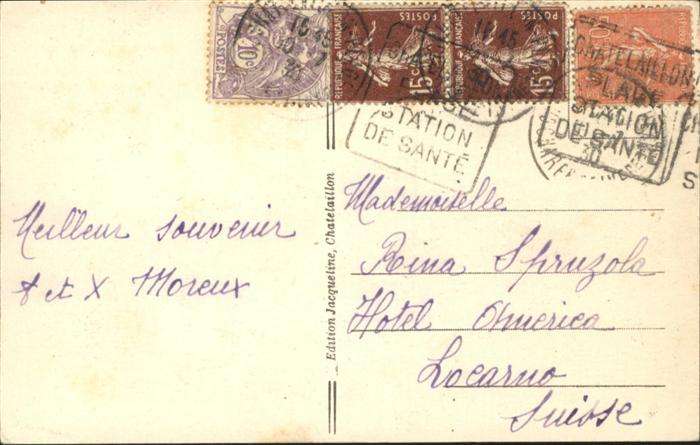 POSTES
10
REPUBLIQUE FRANÇAISE
POSTES
15c
REPUBLIQUE FRANÇAISE
POSTES
15c
CHATELAILLON
STATION
DE SANTÉ
CHATELAILLON
PLAGE
STATION
DE SANTÉ
Meilleur souvenir
Moreux
Edition Jacqueline, Chatelaillon
Mademoiselle
Rina Spruzola
Hotel America
Locarno
Suisse